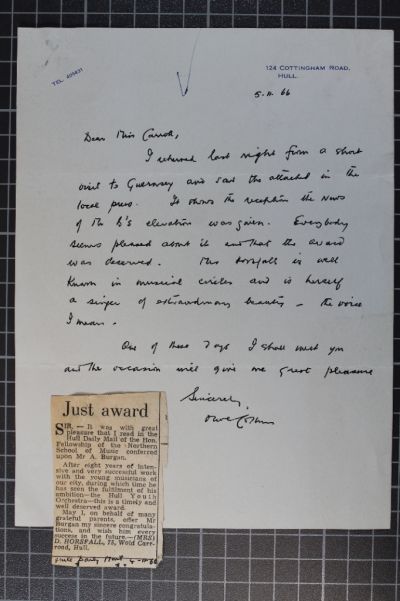 TEL. 405431
124 COTTINGHAM ROAD,
HULL.
5.11.66
Dear Miss Carroll,
I returned last night from a short
visit to Guernsey and read the attached in the
local press. It shows the reception the news
of Mr B's elevation was given. Everybody
seems pleased about it and that the award
was deserved. Mrs Horsfall is well
known in musical circles and is herself
a singer of extraordinary beauty – the voice
I mean.
One of these days I shall meet you
and the occasion will give me great pleasure
Sincerely,
Just award
SIR, — It was with great
pleasure that I read in the
Hull Daily Mail of the Hon.
Fellowship of the Northern
School of Music conferred
upon Mr A. Burgan.
After eight years of inten-
sive and very successful work
with the young musicians of
our city, during which time he
has seen the fulfilment of his
ambition—the Hull Youth
Orchestra—this is a timely and
well deserved award.
May I, on behalf of many
grateful parents, offer Mr
Burgan my sincere congratula-
tions, and wish him every
success in the future.—(MRS)
D. HORSFALL, 75, Wold Carr-
road, Hull.
Hull Daily Mail 4-11-66